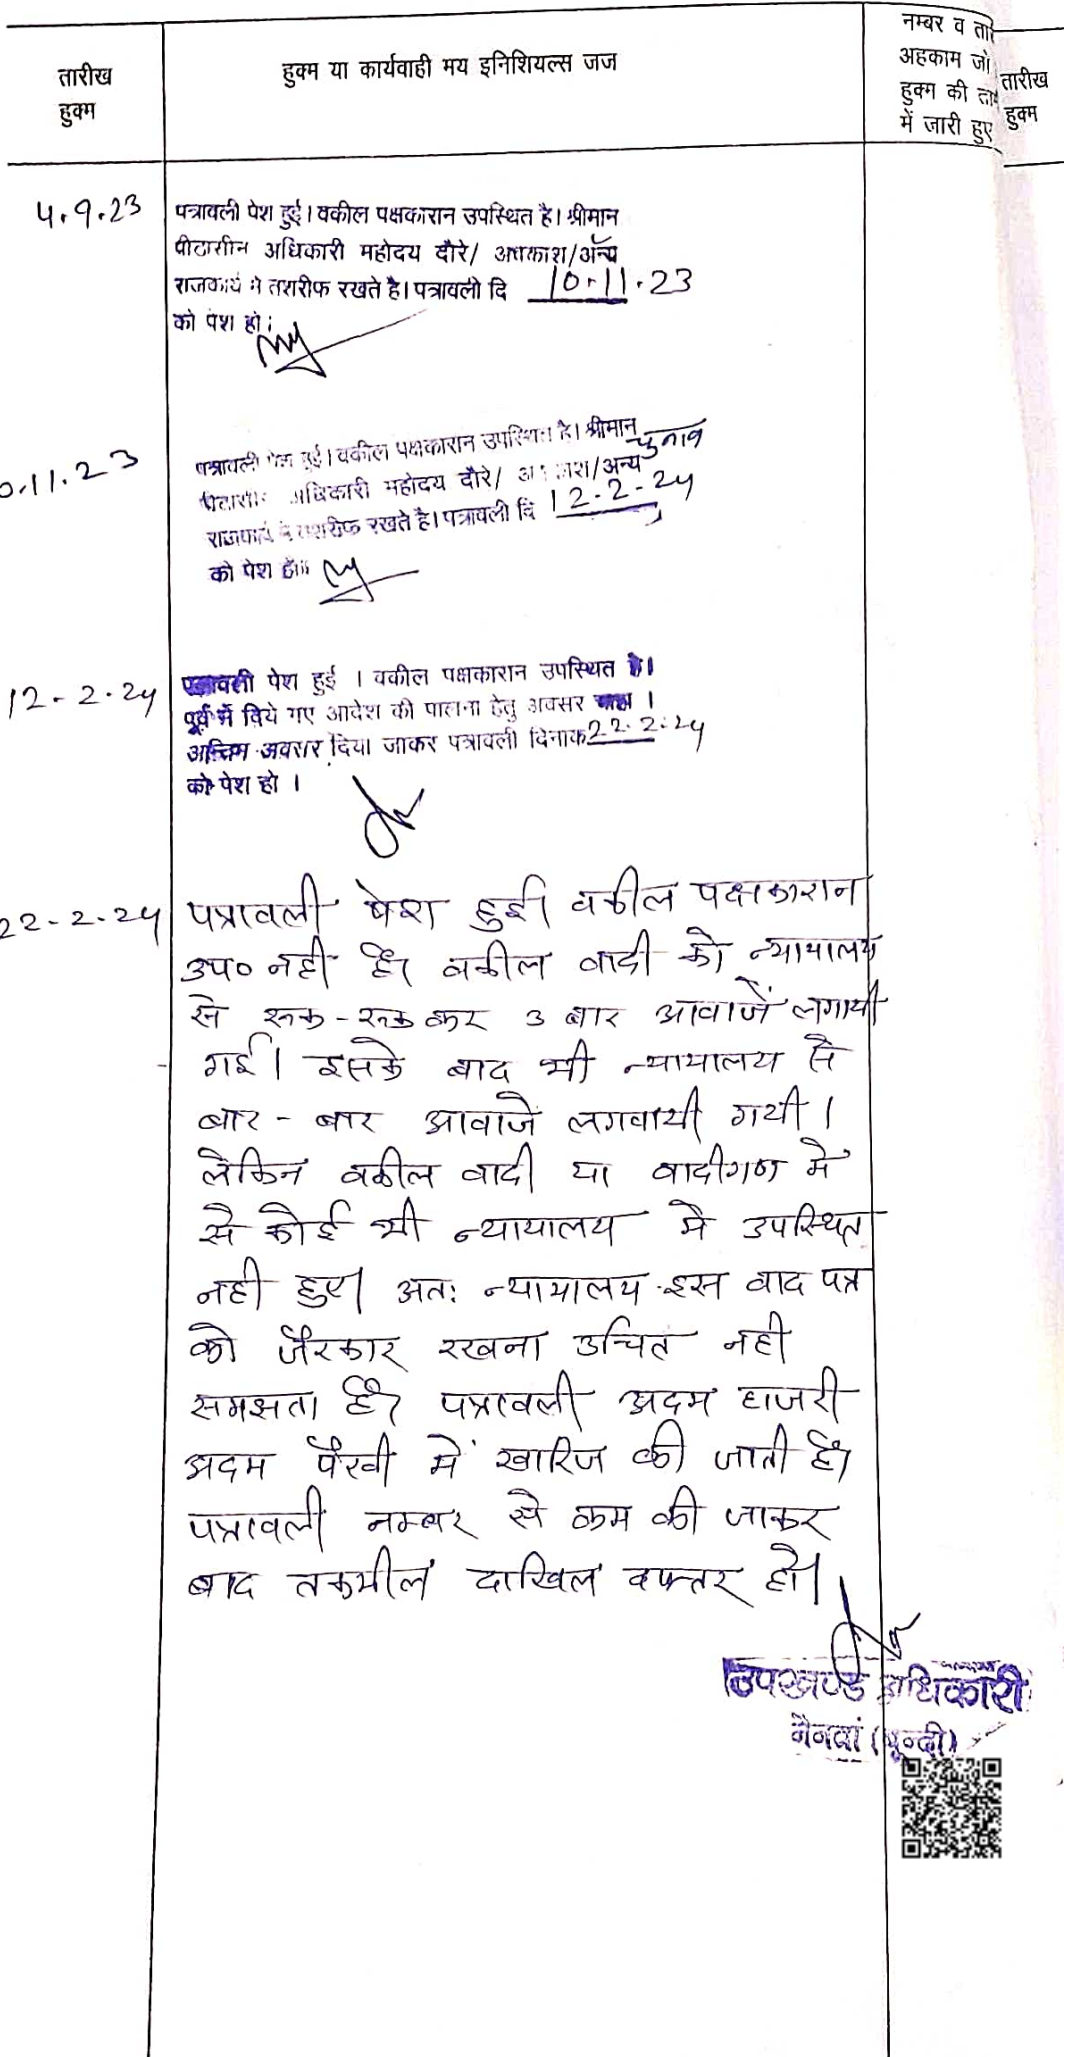 तारीख
हुक्म
हुक्म या कार्यवाही मय इनिशियल्स जज
नम्बर व तारी
अहकाम जो
हुक्म की ता
में जारी हुए
तारीख
हुक्म
4.9.23
पत्रावली पेश हुई। वकील पक्षकारान उपस्थित है। श्रीमान
पीठासीन अधिकारी महोदय दौरे/ अवकाश/अन्य
राजकार्य मे तशरीफ रखते है। पत्रावली दि 10.11.23
को पेश हो।
0.11.23
पत्रावली पेश हुई। वकील पक्षकारान उपस्थित है। श्रीमान
चुनाव
अधिकारी महोदय दौरे/ अवकाश/अन्य
राजकार्य मे तशरीफ रखते है। पत्रावली दि 12-2-24
को पेश हो।
12-2-24
पत्रावली पेश हुई । वकील पक्षकारान उपस्थित है।
पूर्व में दिये गए आदेश की पालना हेतु अवसर चाहा ।
अन्तिम अवसर दिया जाकर पत्रावली दिनाक 22-2-24
को पेश हो ।
22-2-24
पत्रावली पेश हुई। वकील पक्षकारान
उप० नही है। वकील वादी को न्यायालय
से रूक-रूक कर 3 बार आवाजें लगायी
गई। इसके बाद भी न्यायालय से
बार-बार आवाजे लगवायी गयी।
लेकिन वकील वादी या वादीगण में
से कोई भी न्यायालय मे उपस्थित
नही हुए। अतः न्यायालय इस वाद पत्र
को जेरकार रखना उचित नही
समझता है। पत्रावली अदम हाजरी
अदम पैरवी में खारिज की जाती है।
पत्रावली नम्बर से कम की जाकर
बाद तकमील दाखिल दफ्तर हो।
उपखण्ड अधिकारी
नैनवां (बून्दी)